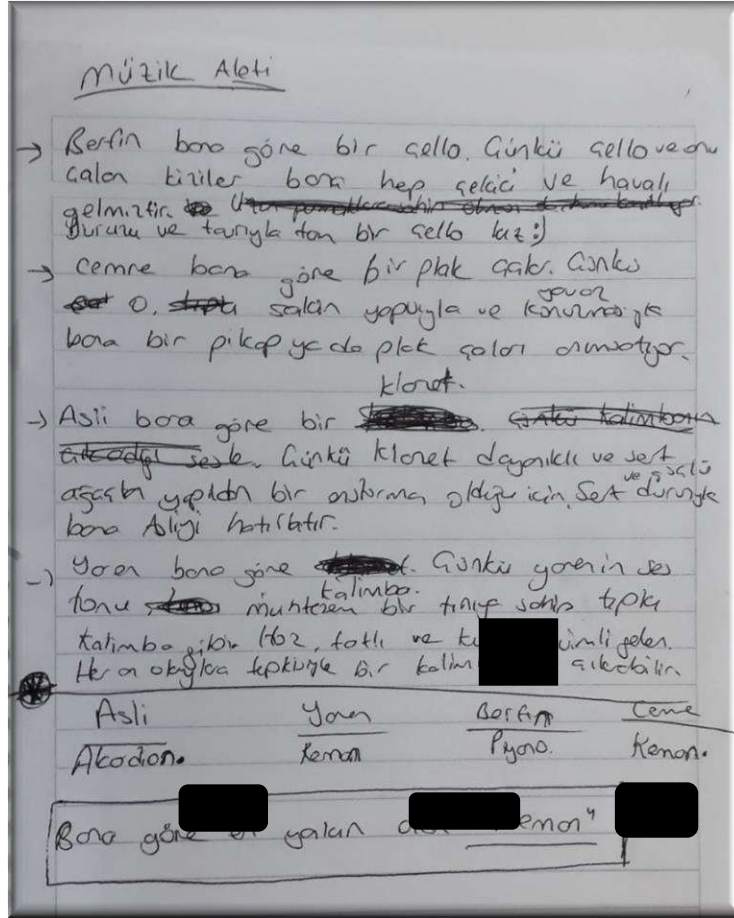 Müzik Aleti
→ Berfin bana göre bir çello. Çünkü çello ve onu
çalan kişiler bana hep çekici ve havalı
gelmiştir.
Duruşu ve tavrıyla tam bir çello kız :)
→ Cemre bana göre bir plak çalar. Çünkü
O, sakin yapısıyla ve yavaş konuşmasıyla
bana bir pikap ya da plak çaları anımsatıyor.
klarnet.
→ Asli bana göre bir Çünkü kalimbanın
çıkardığı sesle. Çünkü klarnet dayanıklı ve sert
ağaçtan yapılan bir enstrüman olduğu için. Sert ve güçlü duruşuyla
bana Asliyi hatırlatır.
→ Yaren bana göre Çünkü yarenin ses
kalimba.
tonu muhteşem bir tınıya sahip tıpkı
kalimba gibi. Haz, tatlı ve
Her an tepkisiyle bir kalim çıkabilir.
Asli Yaren Berfin Cemre
Akodion. Keman Piyano. Keman.
Bana göre en yakın emon"